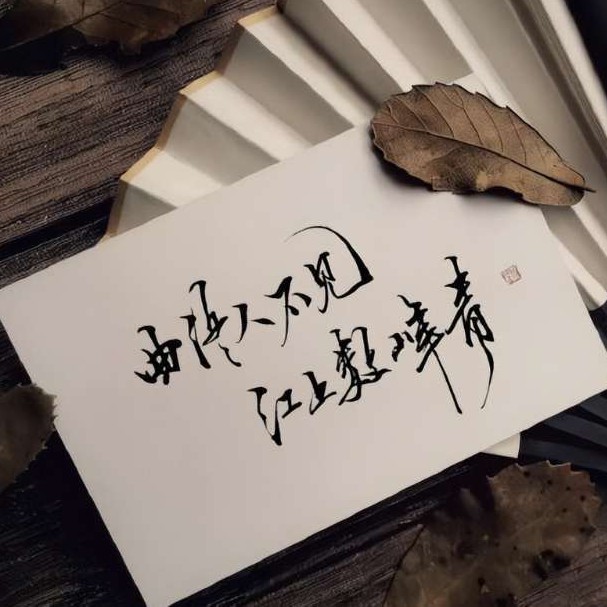 曲终人不见
江上数峰青